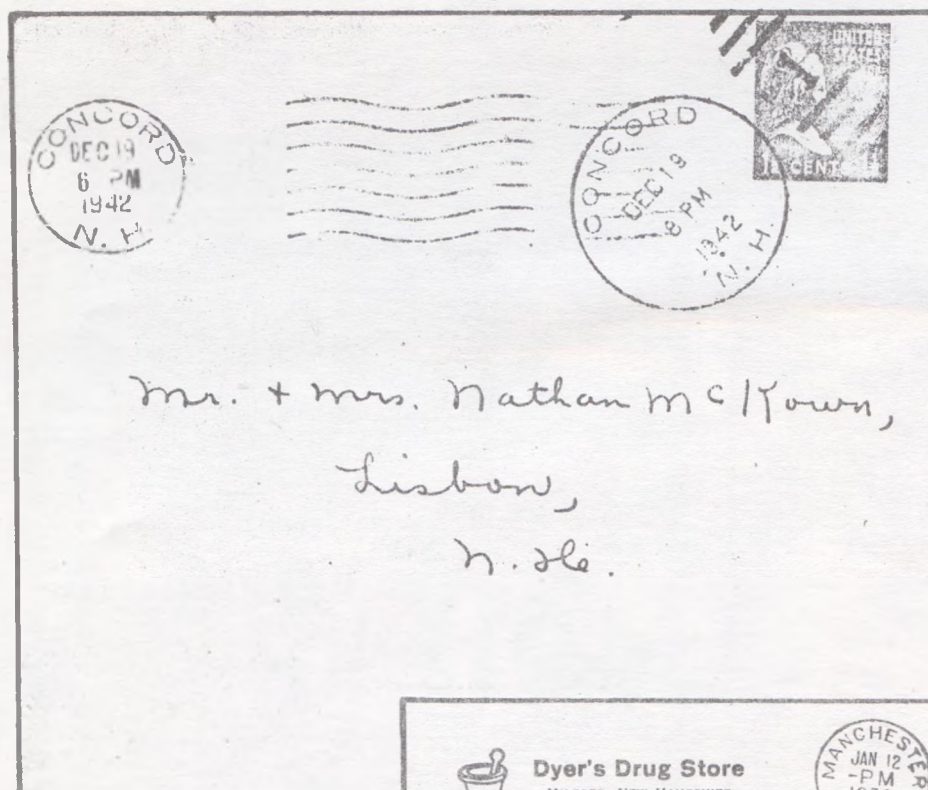 CONCORD
DEC 19
6 PM
1942
N. H.
CONCORD
DEC 19
8 PM
1942
N. H.
UNITED
STATES
Mr. + Mrs. Nathan McKown,
Lisbon,
N. H.
Dyer's Drug Store
MANCHESTER
JAN 12
-PM